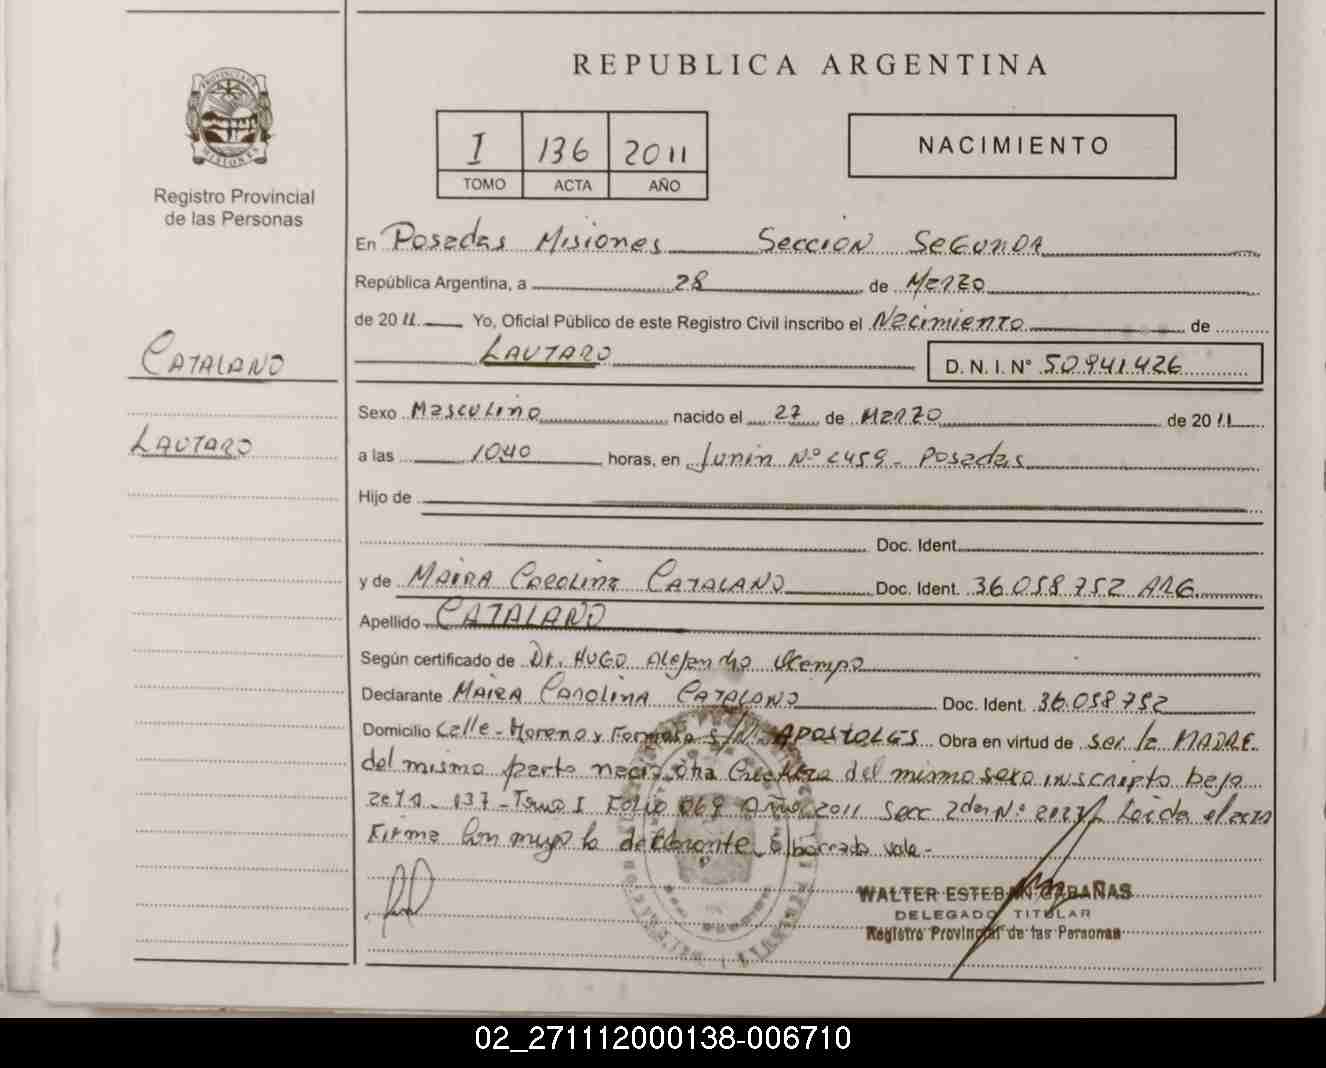 REPUBLICA ARGENTINA
PROVINCIA DE MISIONES
Registro Provincial
de las Personas
I 136 2011
TOMO ACTA AÑO
NACIMIENTO
En Posadas Misiones Sección Segunda
República Argentina, a 28 de Marzo
de 2011 Yo, Oficial Público de este Registro Civil inscribo el Nacimiento de
LAUTARO D. N. I. N° 50.941.426
CATALANO
LAUTARO
Sexo Masculino nacido el 27 de Marzo de 2011
a las 1040 horas, en Junin N° 2459 - Posadas
Hijo de
Doc. Ident.
y de MAIRA CAROLINA CATALANO Doc. Ident. 36.058.752 ARG
Apellido CATALANO
Según certificado de Dr. HUGO Alejandro Ocampo
Declarante MAIRA CAROLINA CATALANO Doc. Ident. 36.058.752
Domicilio Calle - Moreno y Formosa S/N - APOSTOLES Obra en virtud de ser la MADRE
del mismo parto nació otra criatura del mismo sexo inscripto bajo
acta - 137 - Tomo I Folio 069 Año 2011 Secc 2da Leida el acta
Firma conmigo la declarante borrado vale -
WALTER ESTEBAN CABAÑAS
DELEGADO TITULAR
Registro Provincial de las Personas
02_271112000138-006710